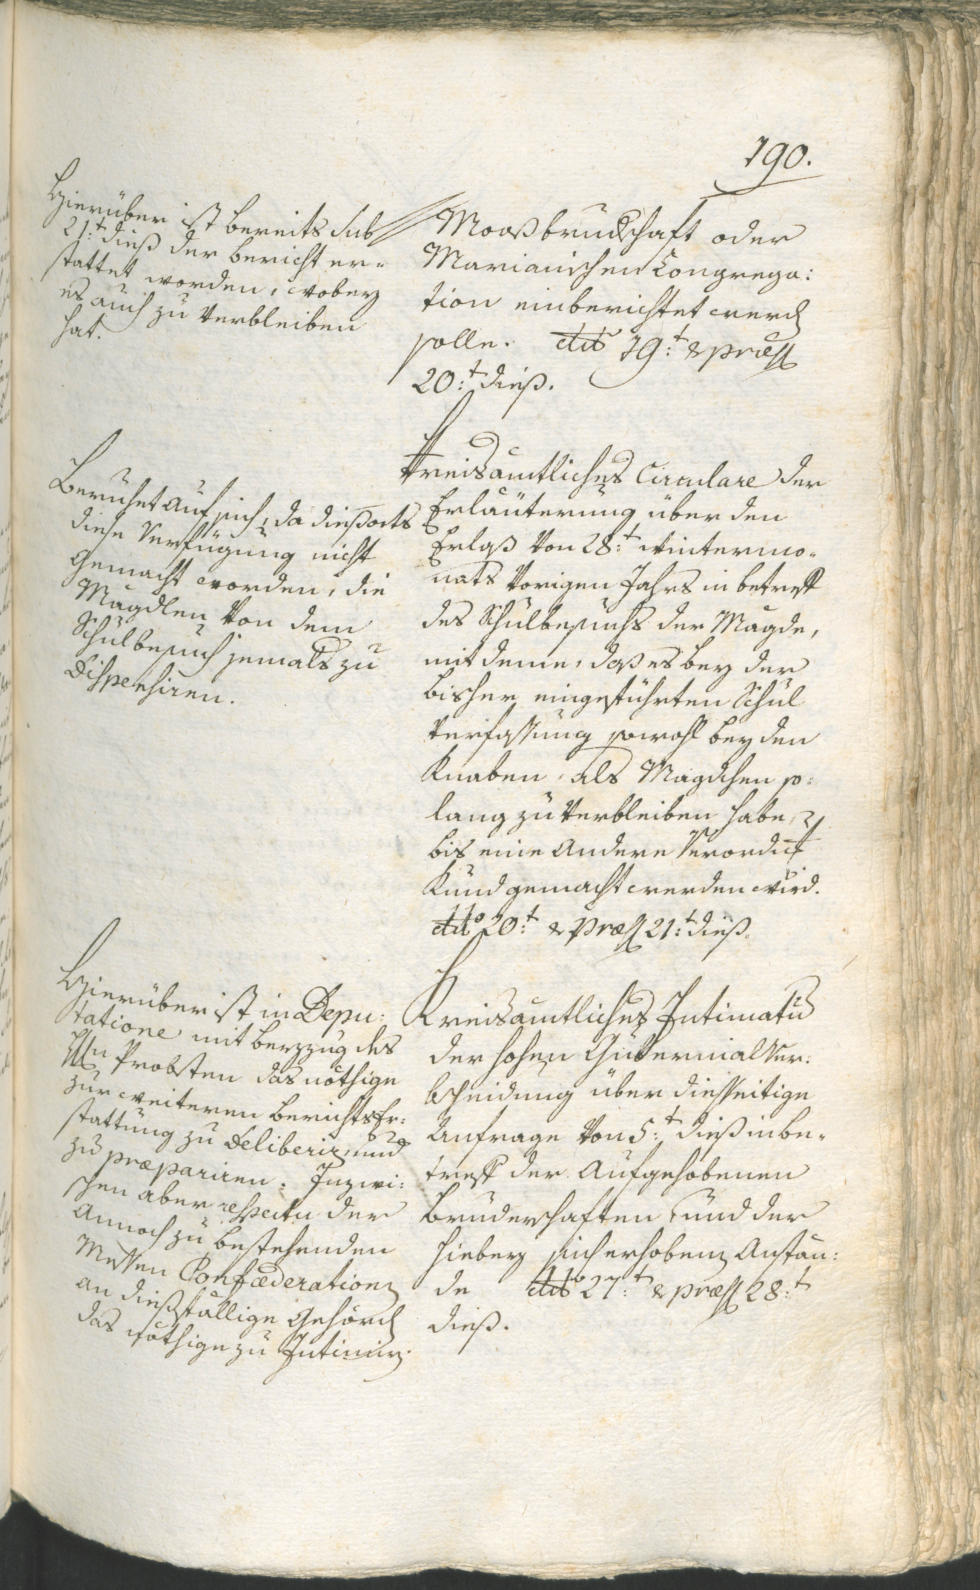 190.
Hierüber ist bereits sub
21:t dieß der bericht er-
stattet worden, wobey
es auch zu verbleiben
hat.
Moosbrudschaft oder
Marianischen Congrega:
tion einberichtet werd
solle. ddo 19:t & præs
20:t dieß.
Beruhet auf sich, da dießorts
diese Verfügung nicht
gemacht worden, die
Mägdlen von dem
Schulbesuch jemals zu
dispensiren.
Kreisamtliches Circulare der
Erläuterung über den
Erlaß von 28:t Wintermo-
nats vorigen Jahrs in betreff
des Schulbesuchs der Mägde,
mit deme, daß es bey der
bisher eingeführten Schul
Verfassung sowohl bey den
Knaben, als Mägdchen so:
lang zu verbleiben habe,
bis eine andere Verordng
Kund gemacht werden wird.
ddo 20:t & Præs 21:t dieß.
Hierüber ist in Depu:
tatione mit berzzug des
Hn Probsten das nöthige
zur weiteren berichts Er:
stattung zu deliberir und
zu præpariren. Inzwi:
schen aber respectu der
annoch zu bestehenden
Messen Confæderation
an dießfällige Gehörd
das nöthige zu Intimir.
Kreisamtliches Intimatu
der hohen Gubernial Ver:
bscheidung über diesseitige
Anfrage von 5:t dieß in be-
treff der aufgehobenen
Bruderschaften und der
hiebey sich erhoben Anstän:
de ddo 27:t & præs 28:t
dieß.